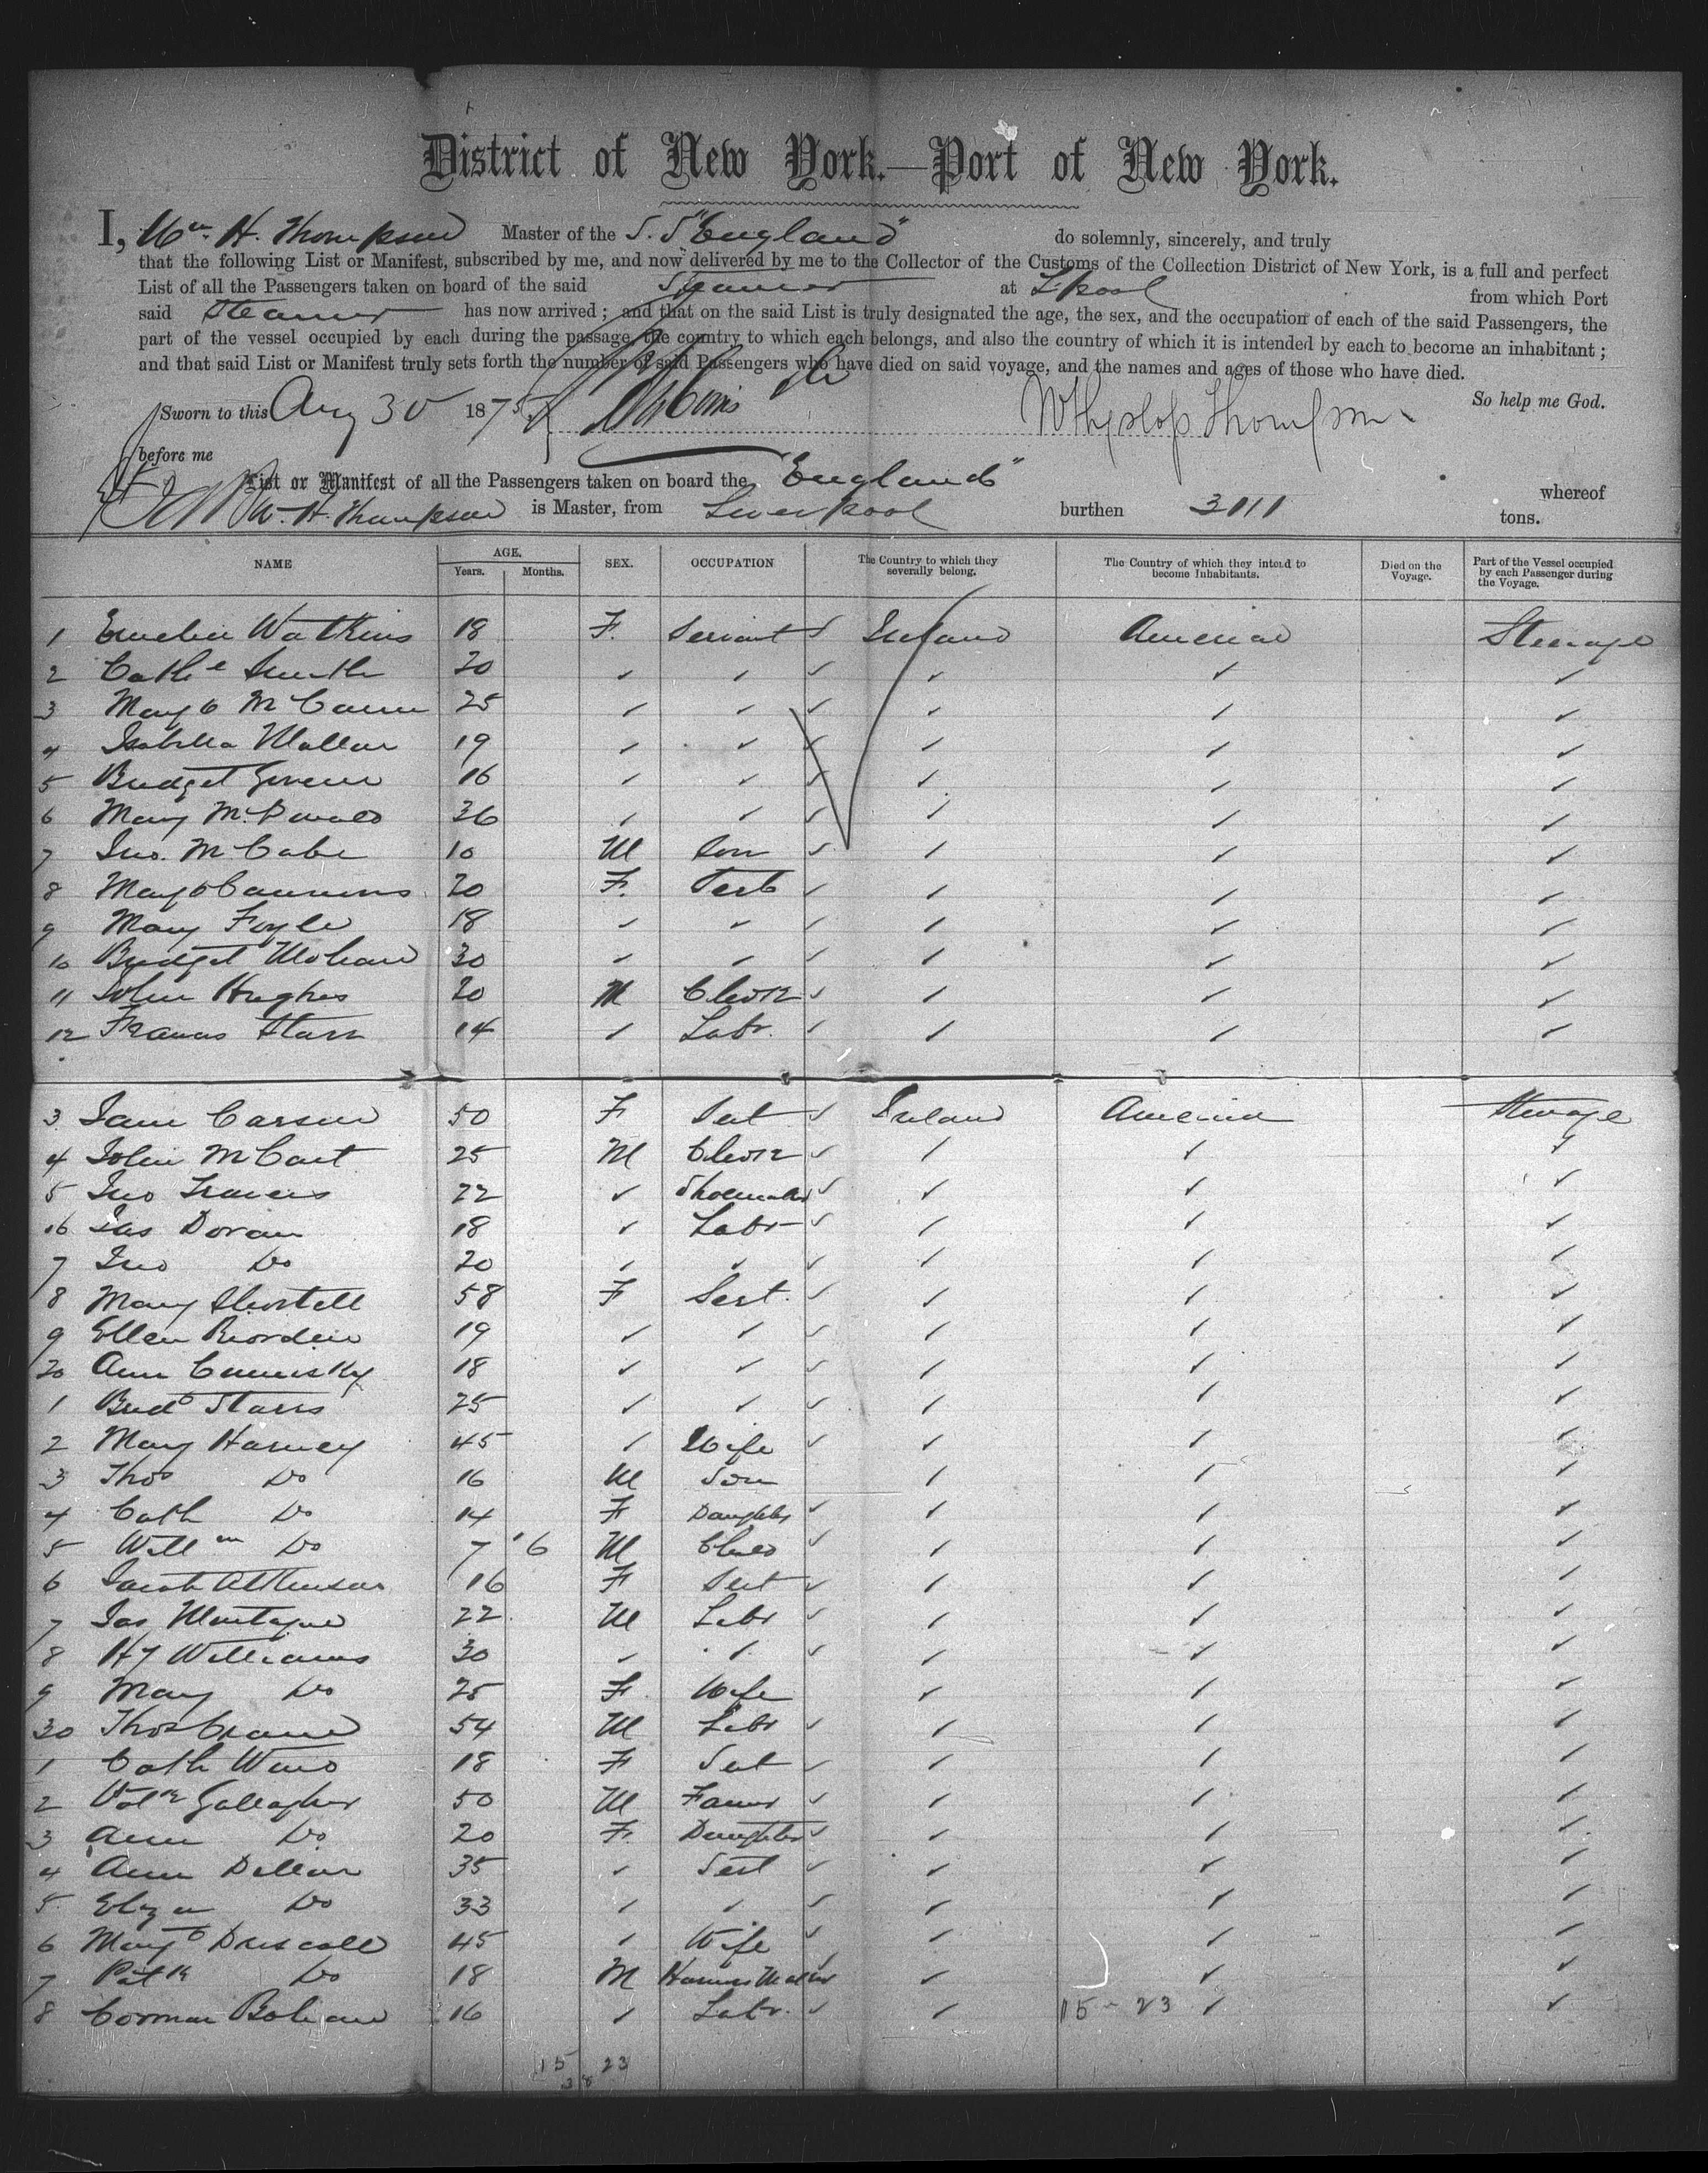 District of New York.—Port of New York.
I, Wm. H. Thompson Master of the S.S "England" do solemnly, sincerely, and truly
that the following List or Manifest, subscribed by me, and now delivered by me to the Collector of the Customs of the Collection District of New York, is a full and perfect
List of all the Passengers taken on board of the said Steamer at L'pool from which Port
said Steamer has now arrived; and that on the said List is truly designated the age, the sex, and the occupation of each of the said Passengers, the
part of the vessel occupied by each during the passage, the country to which each belongs, and also the country of which it is intended by each to become an inhabitant;
and that said List or Manifest truly sets forth the number of said Passengers who have died on said voyage, and the names and ages of those who have died.
Sworn to this Aug 30 1875 W Hyslop Thompson So help me God.
before me
List or Manifest of all the Passengers taken on board the "England" whereof
W. H. Thompson is Master, from Liverpool burthen 3011 tons.
NAME AGE. Years. Months. SEX. OCCUPATION The Country to which they severally belong. The Country of which they intend to become Inhabitants. Died on the Voyage. Part of the Vessel occupied by each Passenger during the Voyage.
1 Watkins 18 F. Servant ✓ Ireland America Steerage
2 Cathe Smith 20 ✓ ✓ ✓ ✓ ✓ ✓
3 Mag M Cann 25 ✓ ✓ ✓ ✓ ✓ ✓
4 Isabella 19 ✓ ✓ ✓ ✓ ✓ ✓
5 Bridget 16 ✓ ✓ ✓ ✓ ✓ ✓
6 Mary 36 ✓ ✓ ✓ ✓ ✓ ✓
7 Jno. McCabe 10 M Son ✓ ✓ ✓ ✓
8 20 F. ✓ ✓ ✓ ✓
9 Mary Foyle 18 ✓ ✓ ✓ ✓ ✓ ✓
10 Bridget 30 ✓ ✓ ✓ ✓ ✓ ✓
11 John Hughes 20 M Clerk ✓ ✓ ✓ ✓
12 Francis Starr 14 ✓ Labr. ✓ ✓ ✓ ✓
3 Jane Carson 50 F ✓ Ireland America Steerage
4 John McCart 25 M Clerk ✓ ✓ ✓ ✓
5 Jno Travers 22 ✓ Shoemaker ✓ ✓ ✓ ✓
16 Jas Doran 18 ✓ Labr ✓ ✓ ✓ ✓
7 Jno Do 20 ✓ ✓ ✓ ✓ ✓ ✓
8 Mary Shortell 58 F Sert. ✓ ✓ ✓ ✓
9 Ellen Riorden 19 ✓ ✓ ✓ ✓ ✓ ✓
20 Ann Cumisky 18 ✓ ✓ ✓ ✓ ✓ ✓
1 Bridt Starrs 25 ✓ ✓ ✓ ✓ ✓ ✓
2 Mary Harney 45 ✓ Wife ✓ ✓ ✓ ✓
3 Thos Do 16 M Son ✓ ✓ ✓
4 Cath Do 14 F Daughter ✓ ✓ ✓ ✓
5 Willm Do 7 6 M Child ✓ ✓ ✓ ✓
6 Sarah Atkinson 16 F ✓ ✓ ✓ ✓
7 Jas Montague 22 M Labr ✓ ✓ ✓ ✓
8 Hy Williams 30 ✓ ✓ ✓ ✓ ✓ ✓
9 Mary Do 25 F Wife ✓ ✓ ✓
30 Thos Crane 54 M Labr ✓ ✓ ✓ ✓
1 Cath 18 F ✓ ✓ ✓ ✓
2 Gallagher 50 M Farmer ✓ ✓ ✓ ✓
3 Ann Do 20 F. Daughter ✓ ✓ ✓ ✓
4 Ann Dillon 35 ✓ Sert ✓ ✓ ✓ ✓
5 Eliza Do 33 ✓ ✓ ✓ ✓ ✓ ✓
6 Driscoll 45 ✓ Wife ✓ ✓ ✓ ✓
7 Patk Do 18 M Harness Maker ✓ ✓ ✓
8 16 ✓ Labr. ✓ ✓ 15 - 23 ✓ ✓
15 23
38